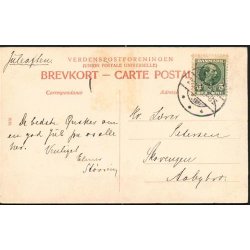 Juleaften
VERDENSPOSTFORENINGEN
(UNION POSTALE UNIVERSELLE)
BREVKORT – CARTE POSTALE
Correspondance
Adresse
DANMARK
De bedste Ønsker om
en god Jul fra os alle
her. Venligst
Støvring
Hr. Lærer
Petersen
Skovengen
Aabybro